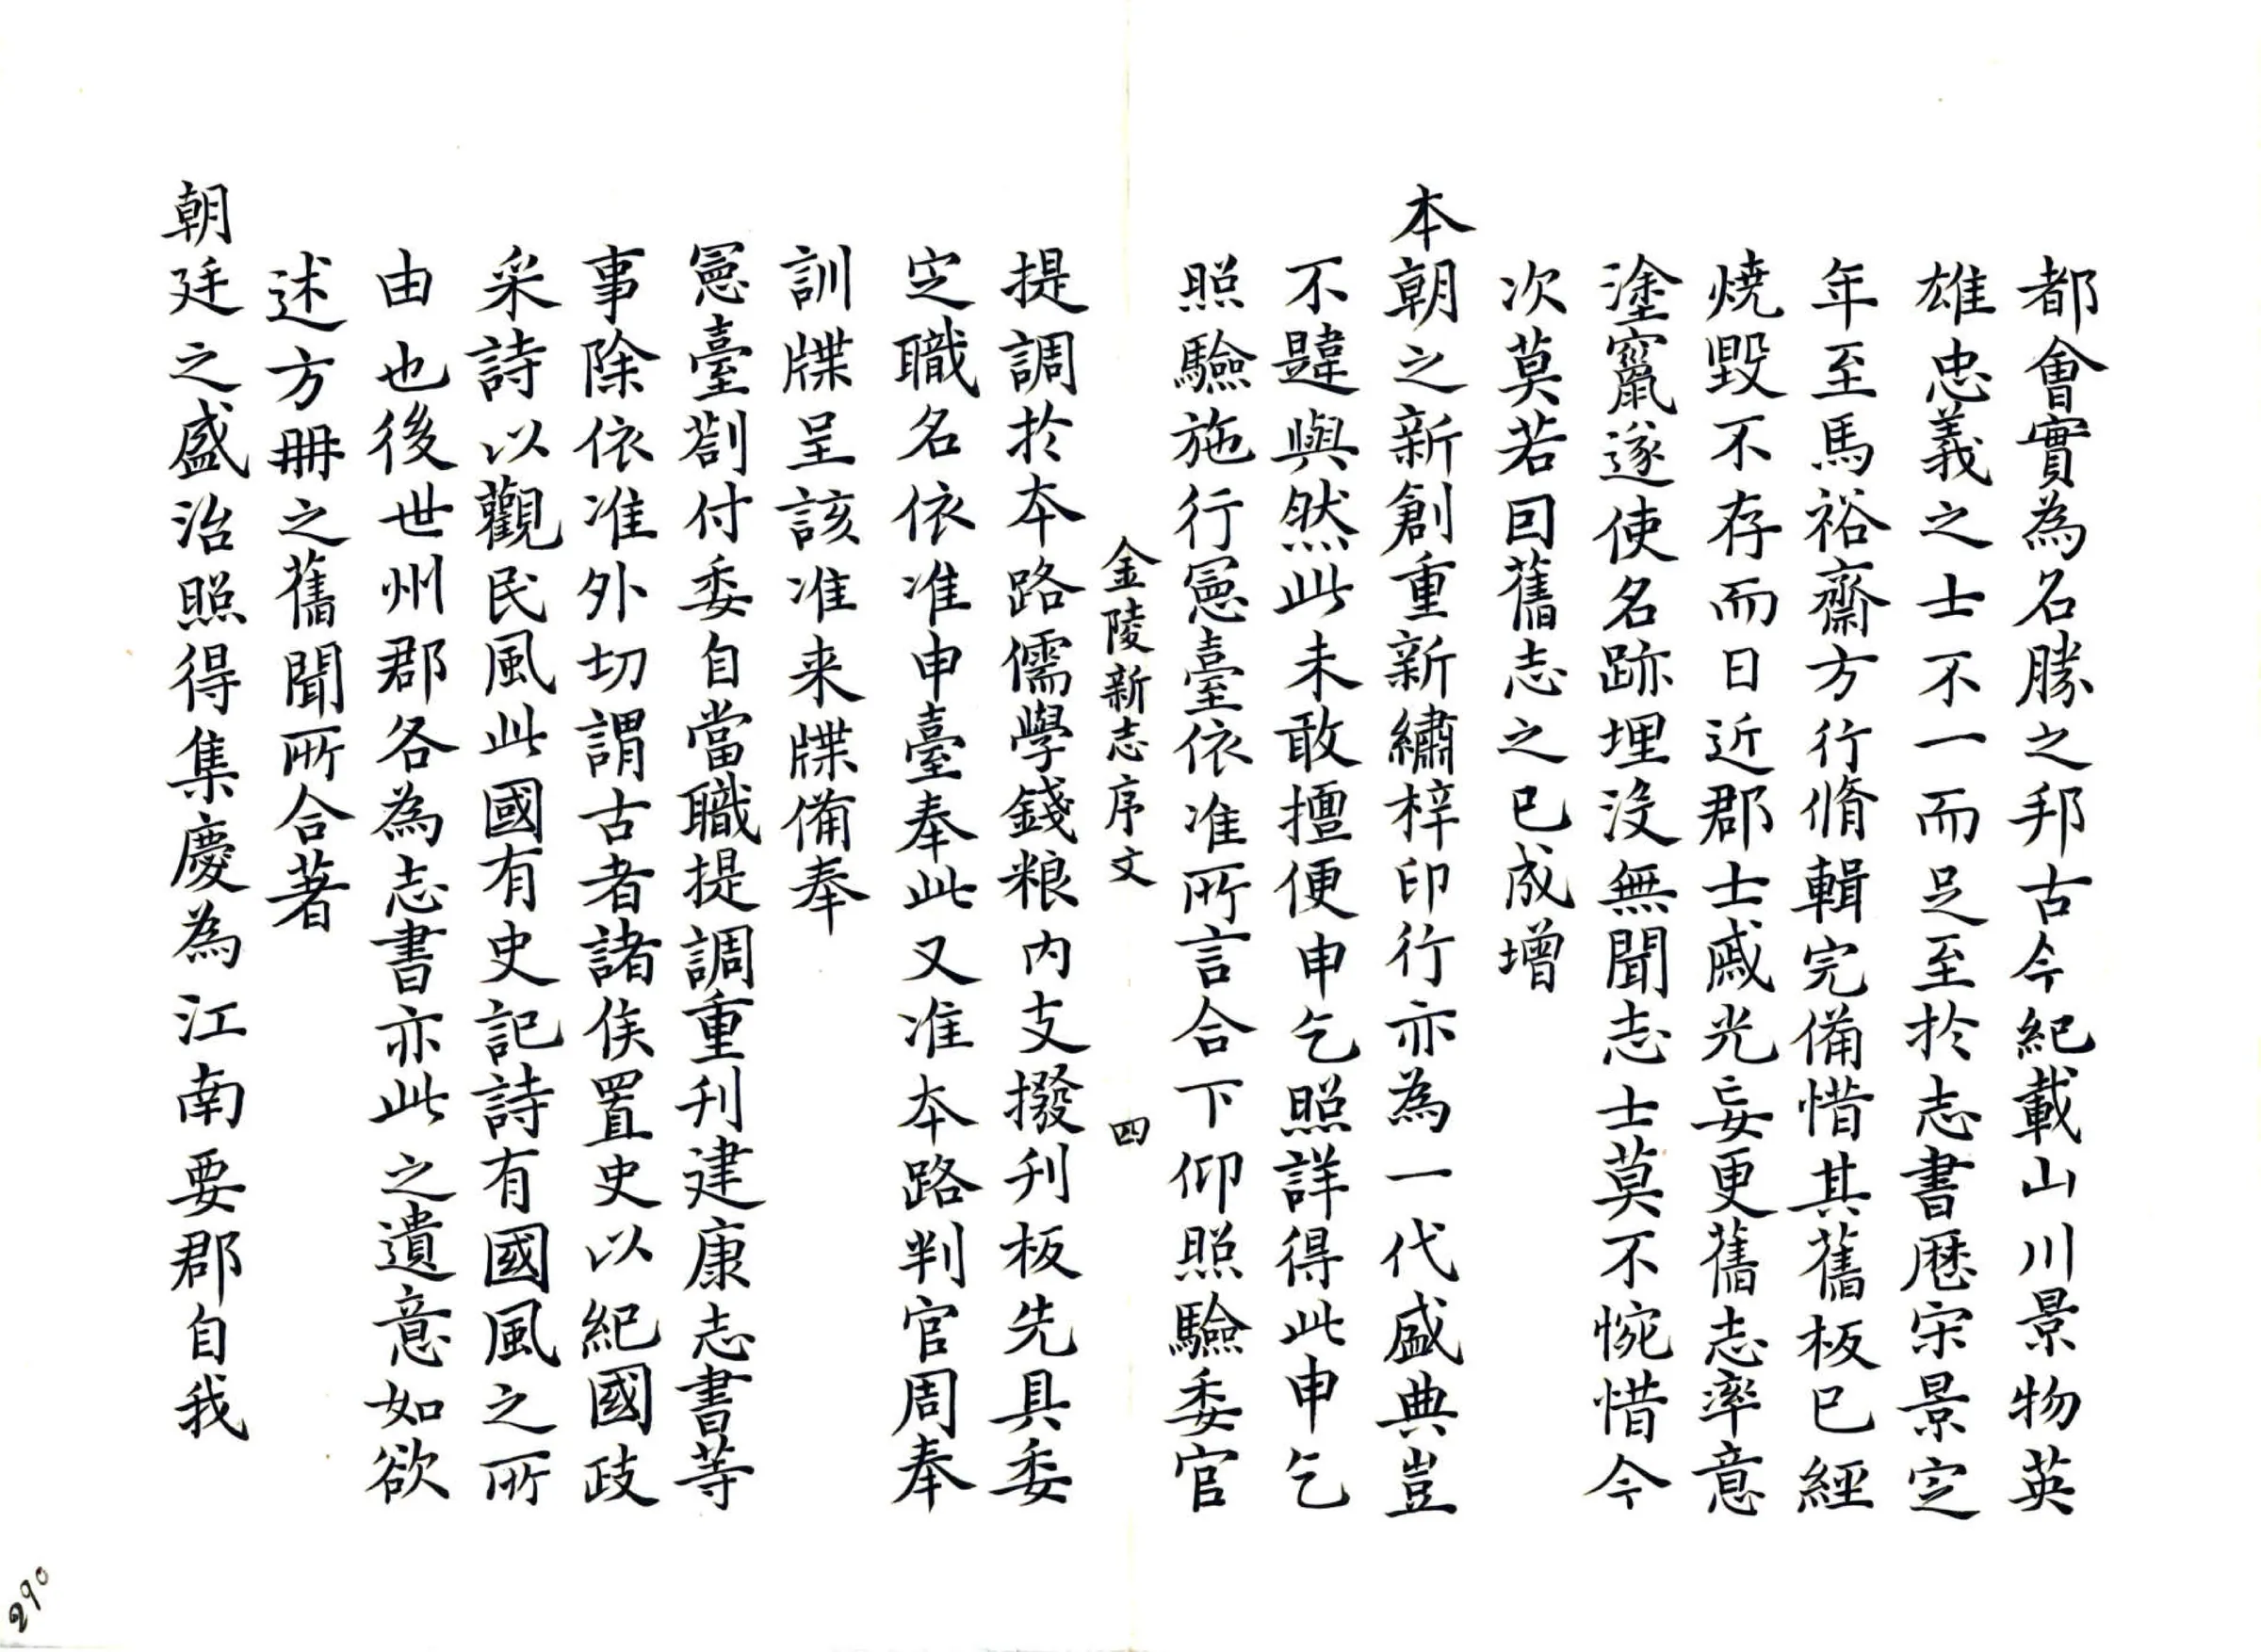 都會實為名勝之邦古今紀載山川景物英
雄忠義之士不一而足至於志書歷宋景定
年至馬裕齋方行脩輯完備惜其舊板已經
燒毀不存而日近郡士戚光妄更舊志率意
塗竄遂使名跡埋沒無聞志士莫不惋惜今
次莫若因舊志之已成增
本朝之新創重新繡梓印行亦為一代盛典豈
不韙與然此未敢擅便申乞照詳得此申乞
照驗施行憲臺依准所言合下仰照驗委官
金陵新志序文 四
提調於本路儒學錢粮內支撥刋板先具委
定職名依准申臺奉此又准本路判官周奉
訓牒呈該准来牒備奉
憲臺劄付委自當職提調重刋建康志書等
事除依准外切謂古者諸侯置史以紀國政
采詩以觀民風此國有史記詩有國風之所
由也後世州郡各為志書亦此之遺意如欲
述方冊之舊聞所合著
朝廷之盛治照得集慶為江南要郡自我
290